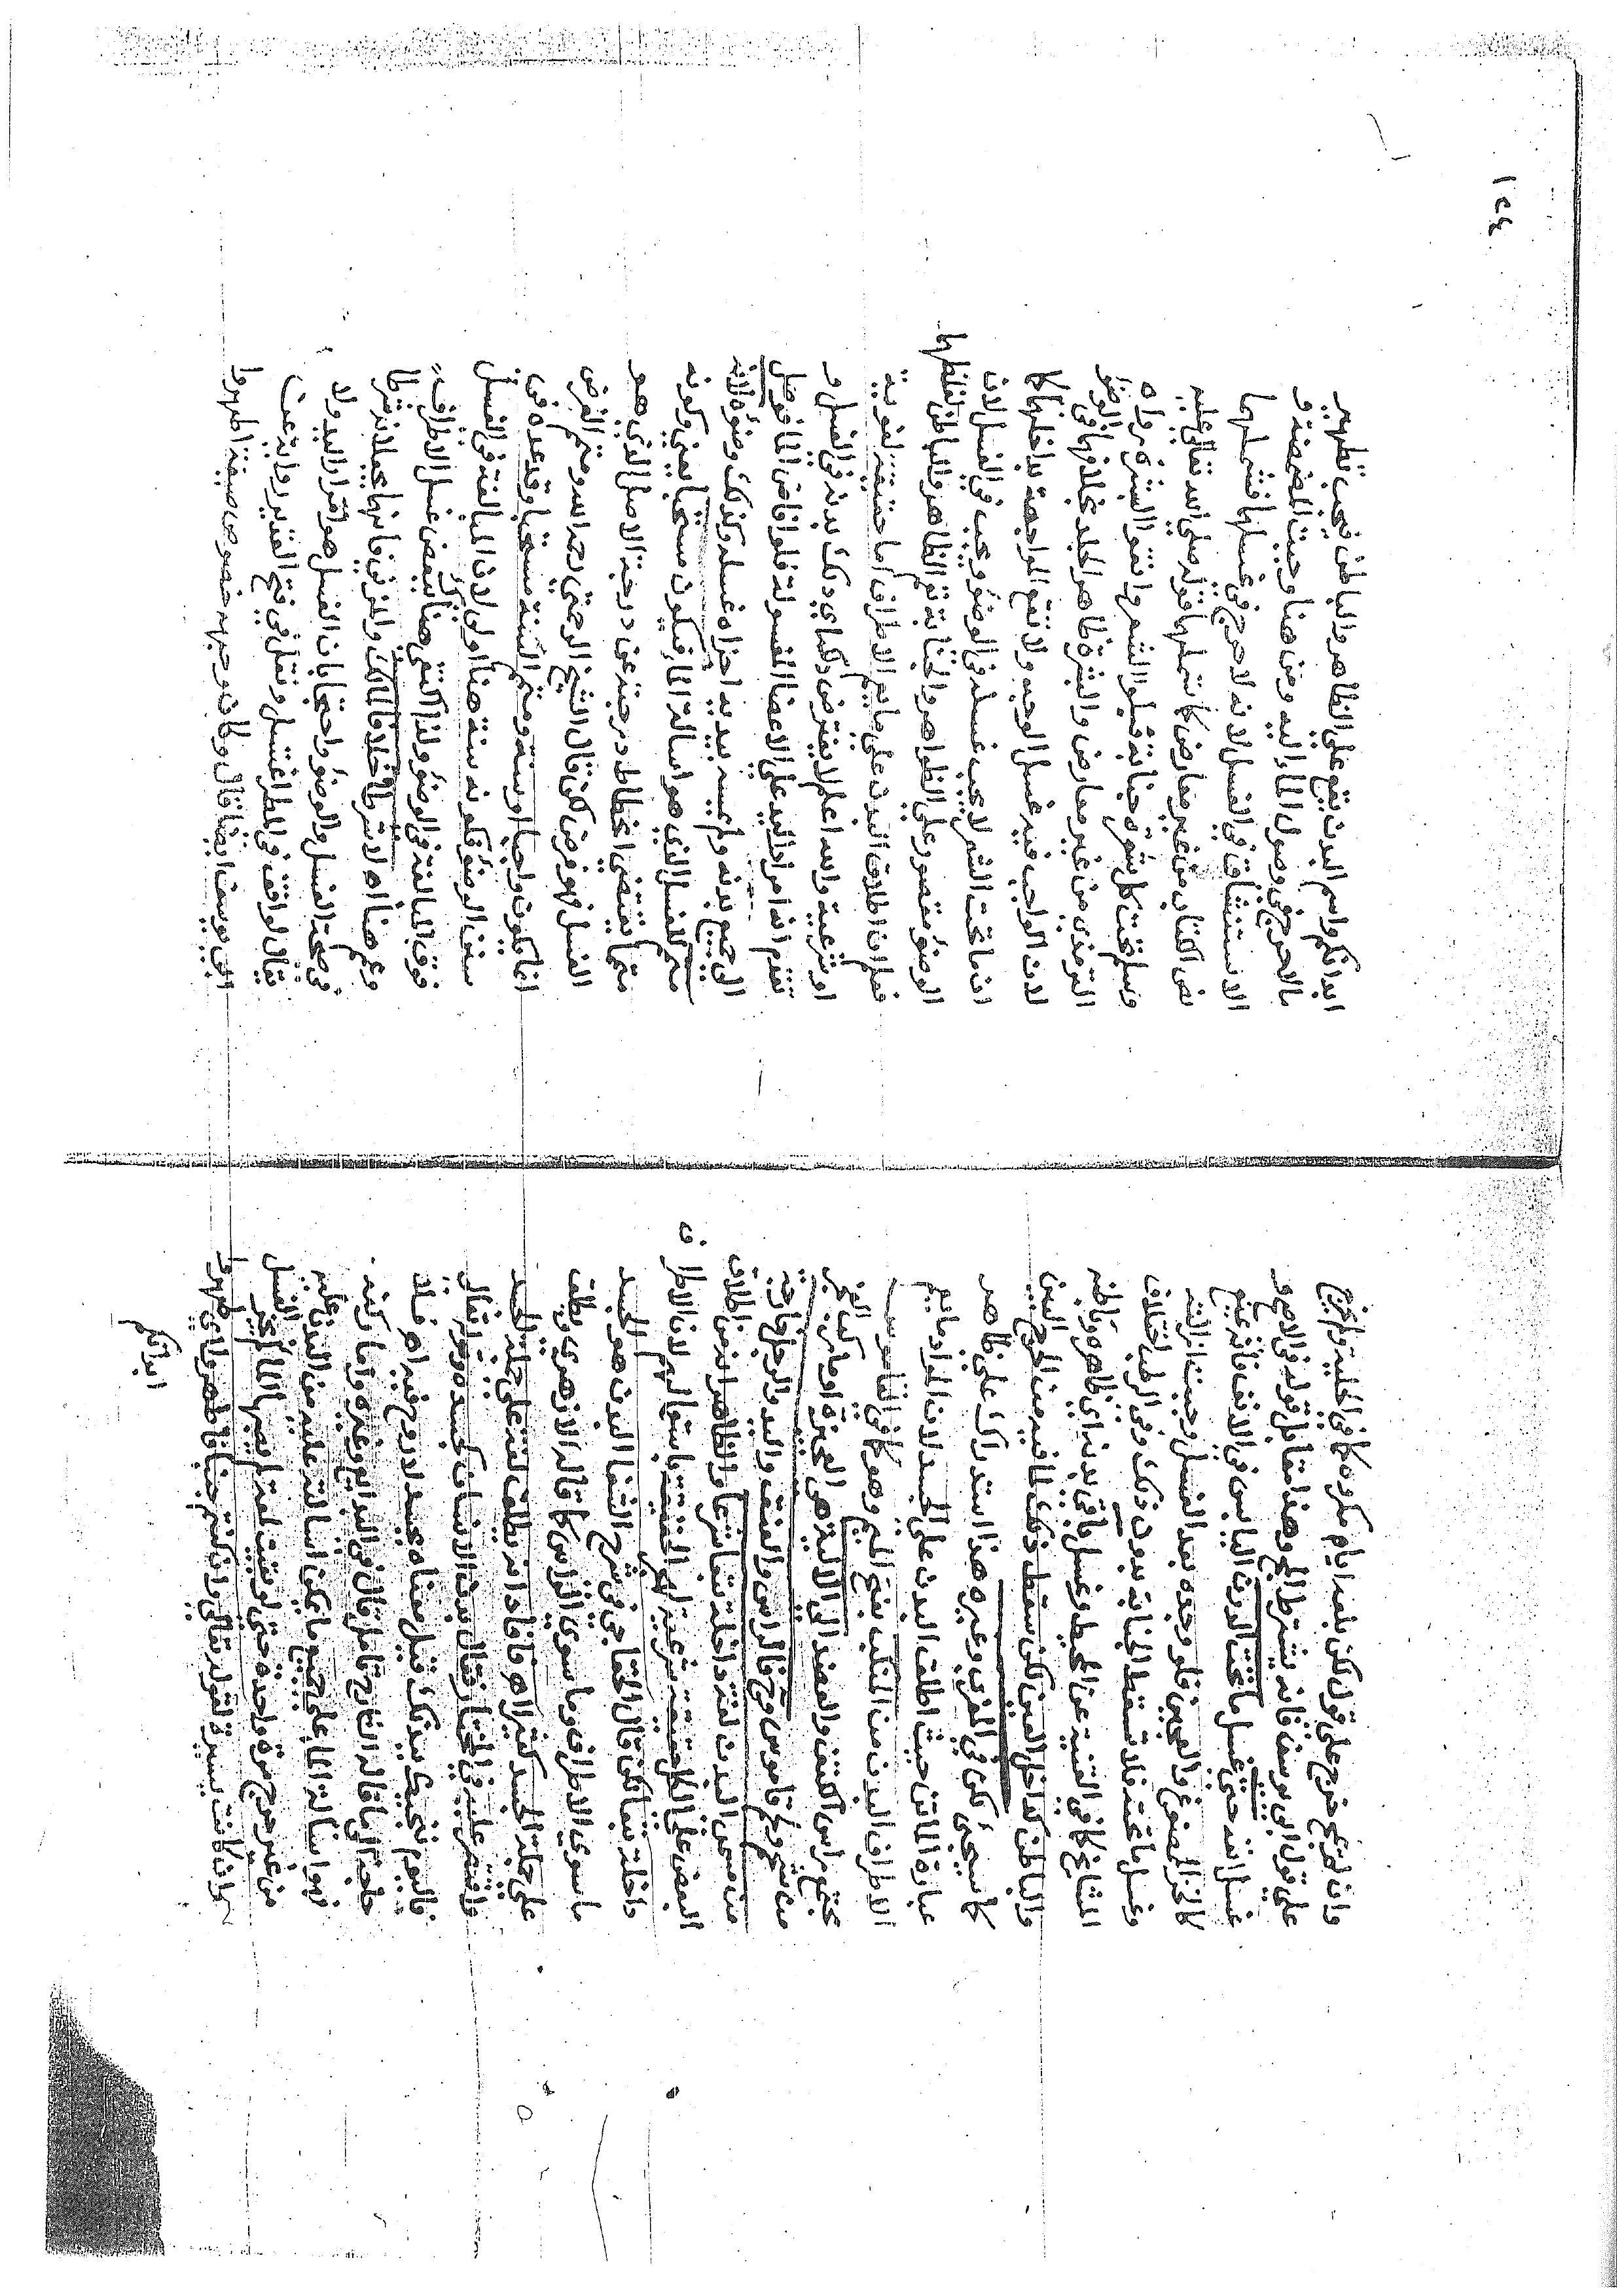 وان لم يمج خرج على قول لكن بلعه اياه مكروه كما في الحلية ولم يخرج
على قول ابي يوسف فانه يشترط المج وهذا مقابل قوله والاصح و
غسل انفه حتى غسل ما تحت الدرن اليابس في الانف فانه يمنع
كالخبز الممضوغ والعجين فلو وجده بعد الغسل وجبت ازالته
وغسل ما تحته فلا تسقط الجنابة بدون ذلك وفي الرطب اختلاف
المشايخ كما في القنية عن المحيط وغسل باقي بدنه اي ظاهره وباطنه
والباطن كداخل العين لكن سقط ذلك لما فيه من الحرج البين
كما سيجيء لكن في المغرب وغيره هذا استدراك على ظاهر
عبارة المتن حيث اطلق البدن على الجسد لان المراد ما يعم
الاطراف البدن من المنكب بفتح الميم وهو كما في القاموس
مجتمع راس الكتف والعضد الى الالية هي العجيزة او ما ركب العجز
من شحم ولحم قاموس وح فالراس والعنق واليد والرجل خارجة
من مسمى البدن لغة داخلة تبعا شرعا والظاهر انه من اطلاق
البعض على الكل حقيقة شرعية لهجر الحقيقة باستوائهم لان الاطراف
داخلة تبعا لكن قال الخفاجي في شرح الشفا البدن هو الجسد
ما سوى الاطراف وما سوى الراس كما قاله الازهري ويطلق
على جملة الجسد كثيرا اه فافاد انه يطلق لغة على جملة الجسد
واقتصر عليه في المختار فقال بدن الانسان جسده وقوله تعالى
فاليوم ننجيك ببدنك قيل معناه بجسد لا روح فيه اه فلا
حاجة الى ما قاله الشارح تامل قال في البدائع وغيره واما ركنه
فهو اسالة الماء على جميع ما يمكن اسالة عليه من البدن عليه
من غير حرج مرة واحدة حتى لو بقيت لمعة لم يصبها الماء لم يجز الغسل
وان كانت يسيرة لقوله تعالى وان كنتم جنبا فاطهروا اي طهروا
ابدانكم
١٤٤
ابدانكم واسم البدن يقع على الظاهر والباطن فيجب تطهير
ما لا حرج في وصول الماء اليه ومن هنا وجبت المضمضة و
الاستنشاق في الغسل لانه لا حرج في غسلهما فشملهما
نص الكتاب من غير معارض كما شملهما قوله صلى الله تعالى عليه
وسلم تحت كل شعرة جنابة فبلوا الشعر وانقوا البشرة رواه
الترمذي من غير معارض والبشرة ظاهر الجلد بخلافهما في الوضوء
لان الواجب فيه غسل الوجه ولا تقع المواجهة بداخلهما كما
ان ما تحت الشعر لا يجب غسله في الوضوء ويجب في الغسل لان
الوضوء مقصور على الظواهر والجنابة تعم الظاهر والباطن لغلظها
فعلم ان اطلاق البدن على ما يعم الاطراف اما حقيقة لغوية
او شرعية والله اعلم لا يفترض دلك اي دلك بدنه في الغسل و
تقدم انه امرار اليد على الاعضاء المغسولة فلو افاض الماء فوصل
الى جميع بدنه ولم يمسه بيديه اجزاه غسله وكذلك وضوءه لانه
متمم للغسل الذي هو اسالة الماء فيكون مستحبا يعني وكونه
متمما يقتضي انحطاط درجته عن درجة الاصل الذي هو
الغسل فهو فرض لكن قال الشيخ الرحمتي رحمه الله ومتمم الفرض
انما يكون واجبا او سنة ومتمم السنة مستحبا وقد عده في
سنن الوضوء فكونه سنة هنا اولى لان المبالغة في الغسل
فوق المبالغة في الوضوء ولذا اكتفي هنا ببعض غسل الاطراف
وعم هنا اه لا شرطا خلافا لمالك والمزني فانهما يجعلانه شرطا
في صحة الغسل والوضوء واحتجا بان الغسل هو امرار اليد ولا
يقال لواقف في المطر اغتسل ونقل في فتح القدير رواية عن
ابي يوسف ايضا قال وكان وجهه خصوص صيغة اطهروا